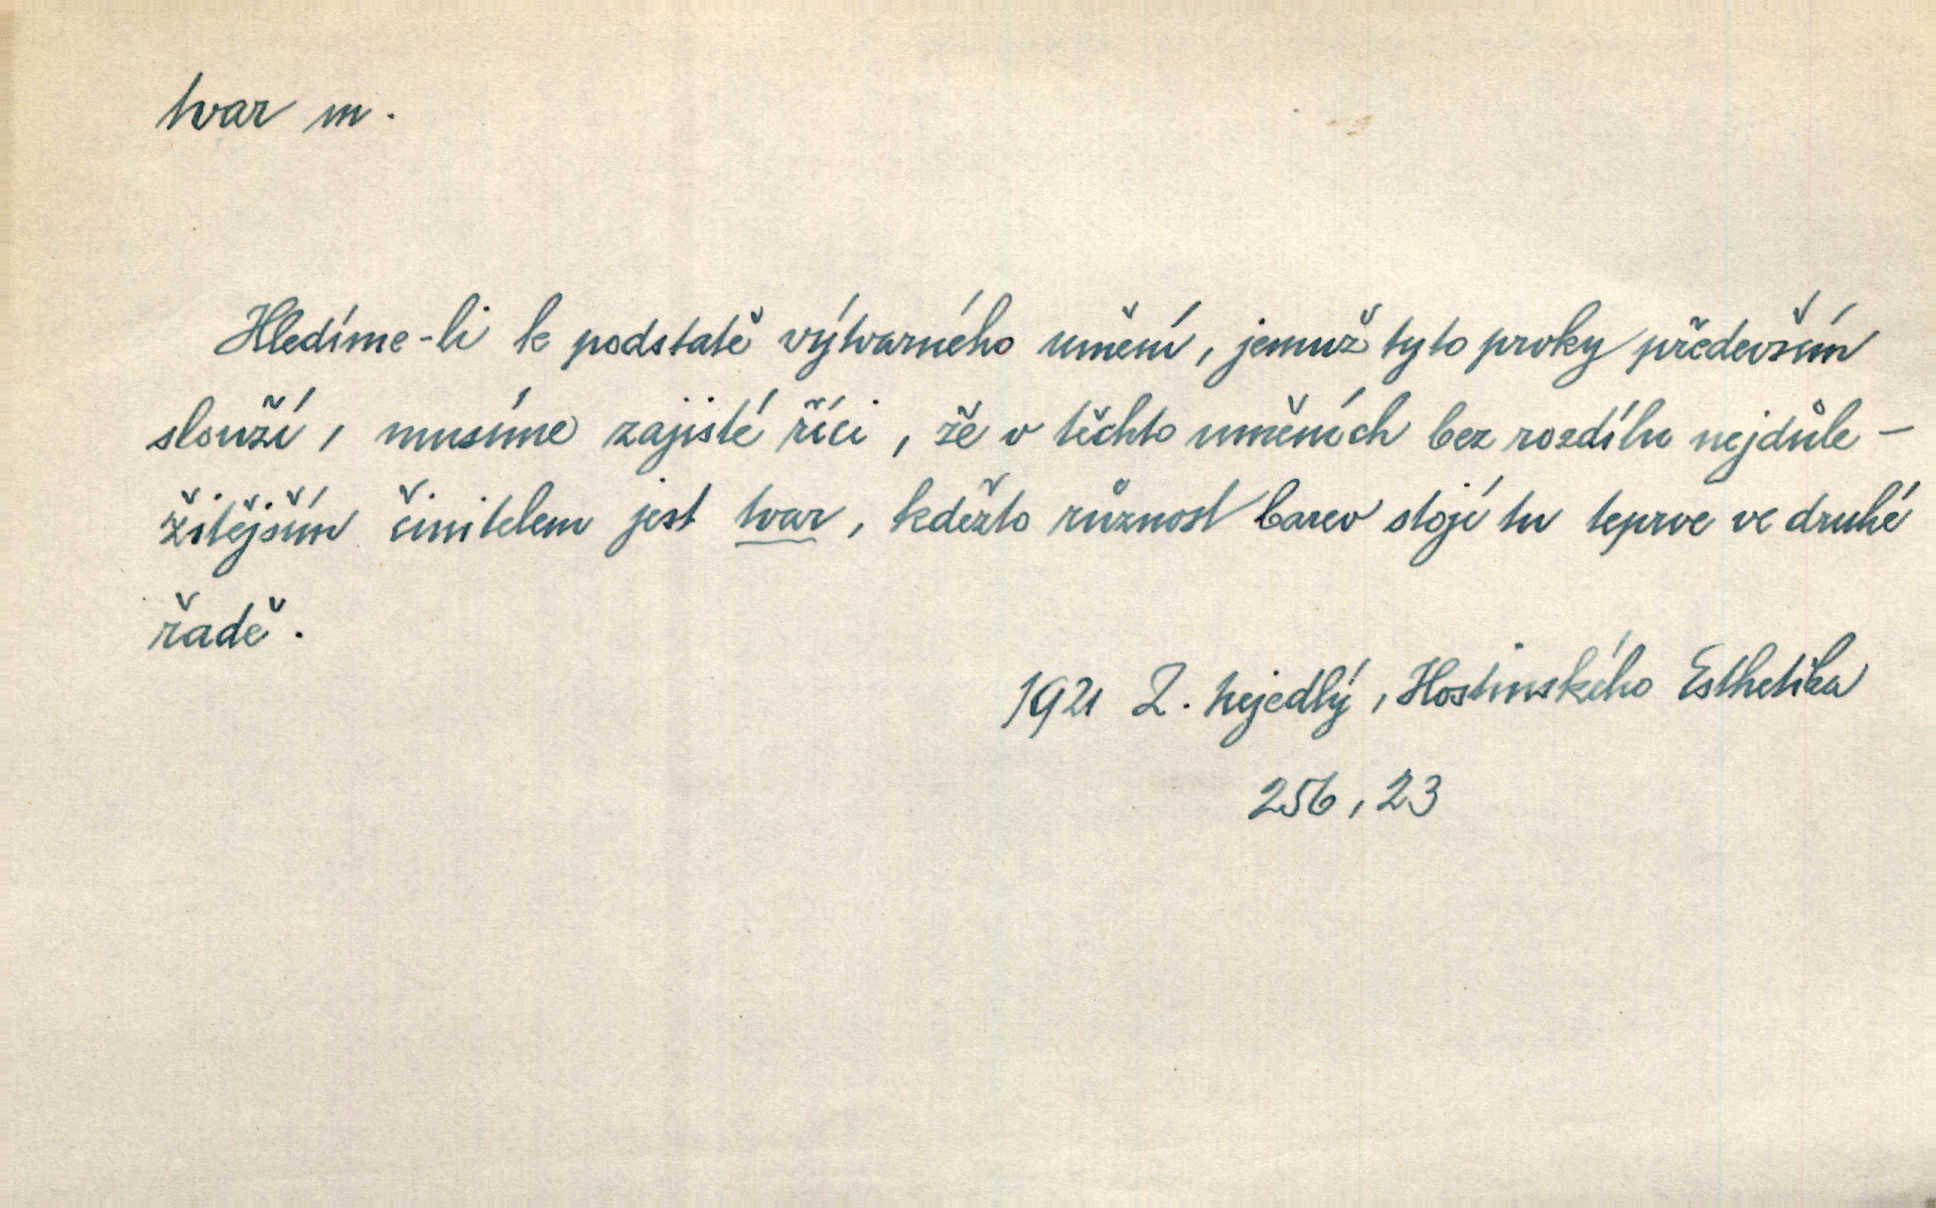 tvar m.
Hledíme-li k podstatě výtvarného umění, jemuž tyto prvky především
slouží, musíme zajisté říci, že v těchto uměních bez rozdílu nejdůle-
žitějším činitelem jest tvar, kdežto různost barev stojí tu teprve ve druhé
řadě.
1921 Z. Nejedlý, Hostinského Esthetika
256, 23